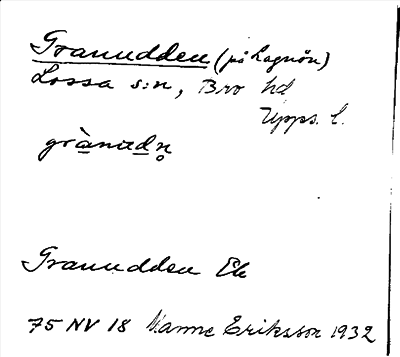 Granudden (på Lagnön)
Lossa s:n, Bro hd
Upps. l.
grànudn̥
Granudden Ek
75 NV 18 Manne Eriksson 1932